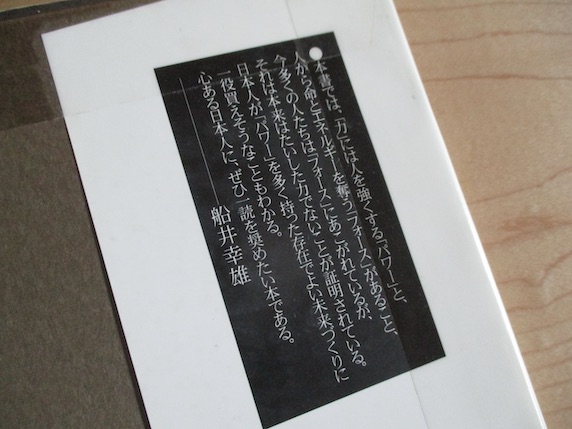 ●本書では、「力」には人を強くする「パワー」と、
人から命とエネルギーを奪う「フォース」があること、
今多くの人たちは「フォース」にあこがれているが、
それは本来はたいした力でないことが証明されている。
日本人が「パワー」を多く持った存在でよい未来づくりに
一役買えそうなこともわかる。
心ある日本人に、ぜひ一読を奨めたい本である。
――船井幸雄